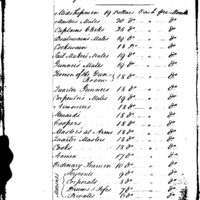 Midshipmen 19 Dollars Each per Month
Masters Mates 20 do " do
Captains Clerks 25 do " do
Boatswains Mates 19 do " do
Cockswain 18 do " do
Sail Makers Mates 19 do " do
Gunners Mates 19 do " do
Yeomen of the Gun Room 18 do " do
Quarter Gunners 18 do " do
Carpenters Mates 19 do " do
Armourers 18 do " do
Stewards 18 do " do
Coopers 18 do " do
Masters at Arms 18 do " do
Quarter Masters 18 do " do
Cooks 18 do " do
Seamen 17 do " do
Ordinary Seamen 10 do " do
Marines
Serjeants 9 do " do
Corporals 8 do " do
Drums & Fifes 7 do " do
Privates 6 do " do